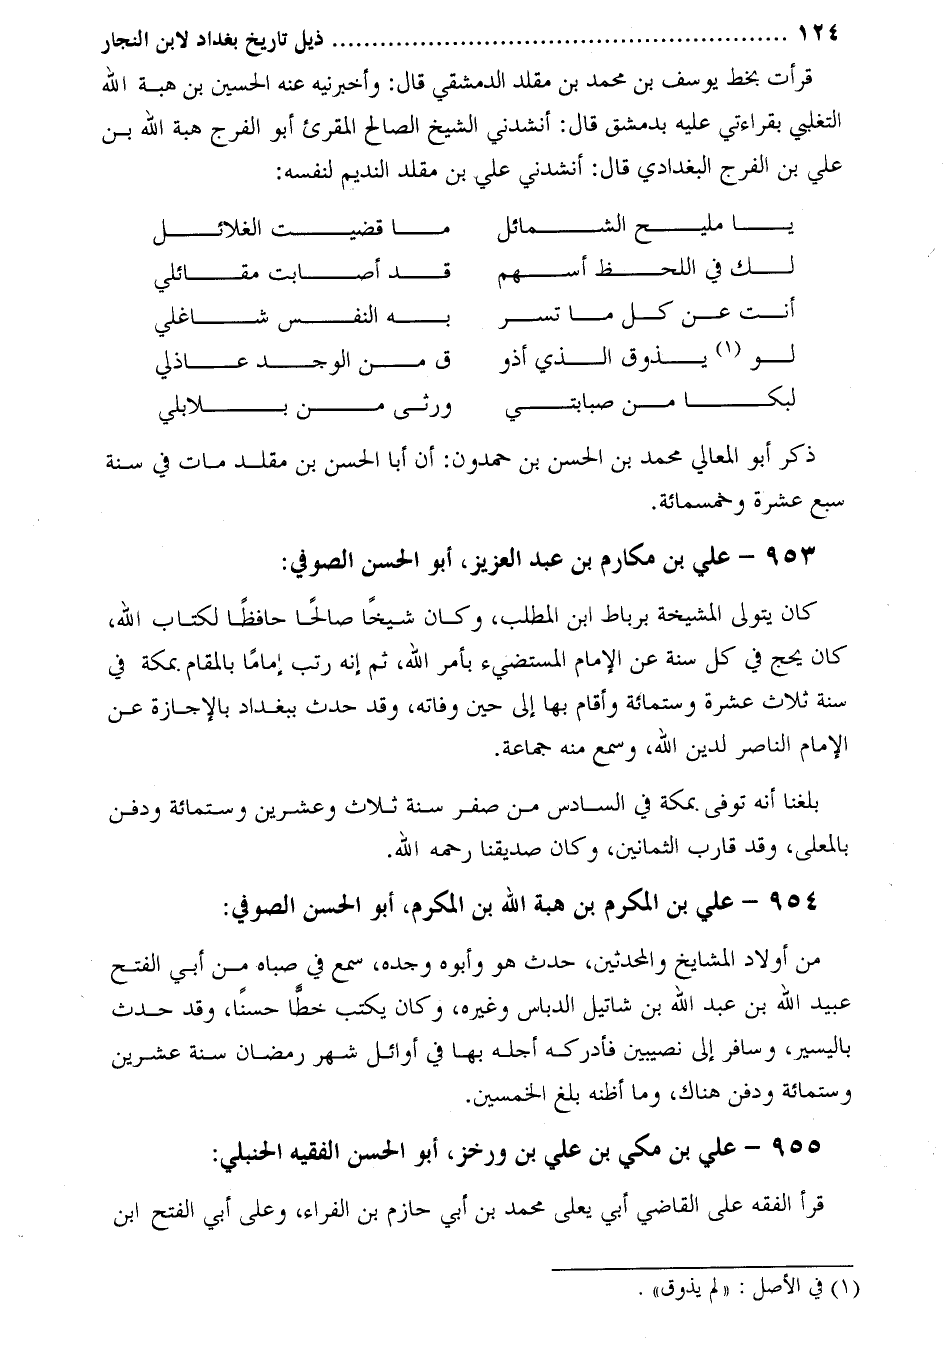 ١٢٤ ........................................................ ذيل تاريخ بغداد لابن النجار
قرأت بخط يوسف بن محمد بن مقلد الدمشقي قال: وأخبرنيه عنه الحسين بن هبة الله
التغلبي بقراءتي عليه بدمشق قال: أنشدني الشيخ الصالح المقرئ أبو الفرج هبة الله بن
علي بن الفرج البغدادي قال: أنشدني علي بن مقلد النديم لنفسه:
يا مليح الشمائل ما قضيت الغلائل
لك في اللحظ أسهم قد أصابت مقائلي
أنت عن كل ما تسر به النفس شاغلي
لو (١) يذوق الذي أذو ق من الوجد عاذلي
لبكا من صبابتي ورثى من بلابلي
ذكر أبو المعالي محمد بن الحسن بن حمدون: أن أبا الحسن بن مقلد مات في سنة
سبع عشرة وخمسمائة.
٩٥٣ - علي بن مكارم بن عبد العزيز، أبو الحسن الصوفي:
كان يتولى المشيخة برباط ابن المطلب، وكان شيخًا صالحًا حافظًا لكتاب الله،
كان يحج في كل سنة عن الإمام المستضيء بأمر الله، ثم إنه رتب إمامًا بالمقام بمكة في
سنة ثلاث عشرة وستمائة وأقام بها إلى حين وفاته، وقد حدث ببغداد بالإجازة عن
الإمام الناصر لدين الله، وسمع منه جماعة.
بلغنا أنه توفى بمكة في السادس من صفر سنة ثلاث وعشرين وستمائة ودفن
بالمعلى، وقد قارب الثمانين، وكان صديقنا رحمه الله.
٩٥٤ - علي بن المكرم بن هبة الله بن المكرم، أبو الحسن الصوفي:
من أولاد المشايخ والمحدثين، حدث هو وأبوه وجده، سمع في صباه من أبي الفتح
عبيد الله بن عبد الله بن شاتيل الدباس وغيره، وكان يكتب خطًّا حسنًا، وقد حدث
باليسير، وسافر إلى نصيبين فأدركه أجله بها في أوائل شهر رمضان سنة عشرين
وستمائة ودفن هناك، وما أظنه بلغ الخمسين.
٩٥٥ - علي بن مكي بن علي بن ورخز، أبو الحسن الفقيه الحنبلي:
قرأ الفقه على القاضي أبي يعلى محمد بن أبي حازم بن الفراء، وعلى أبي الفتح ابن
(١) في الأصل : «لم يذوق» .